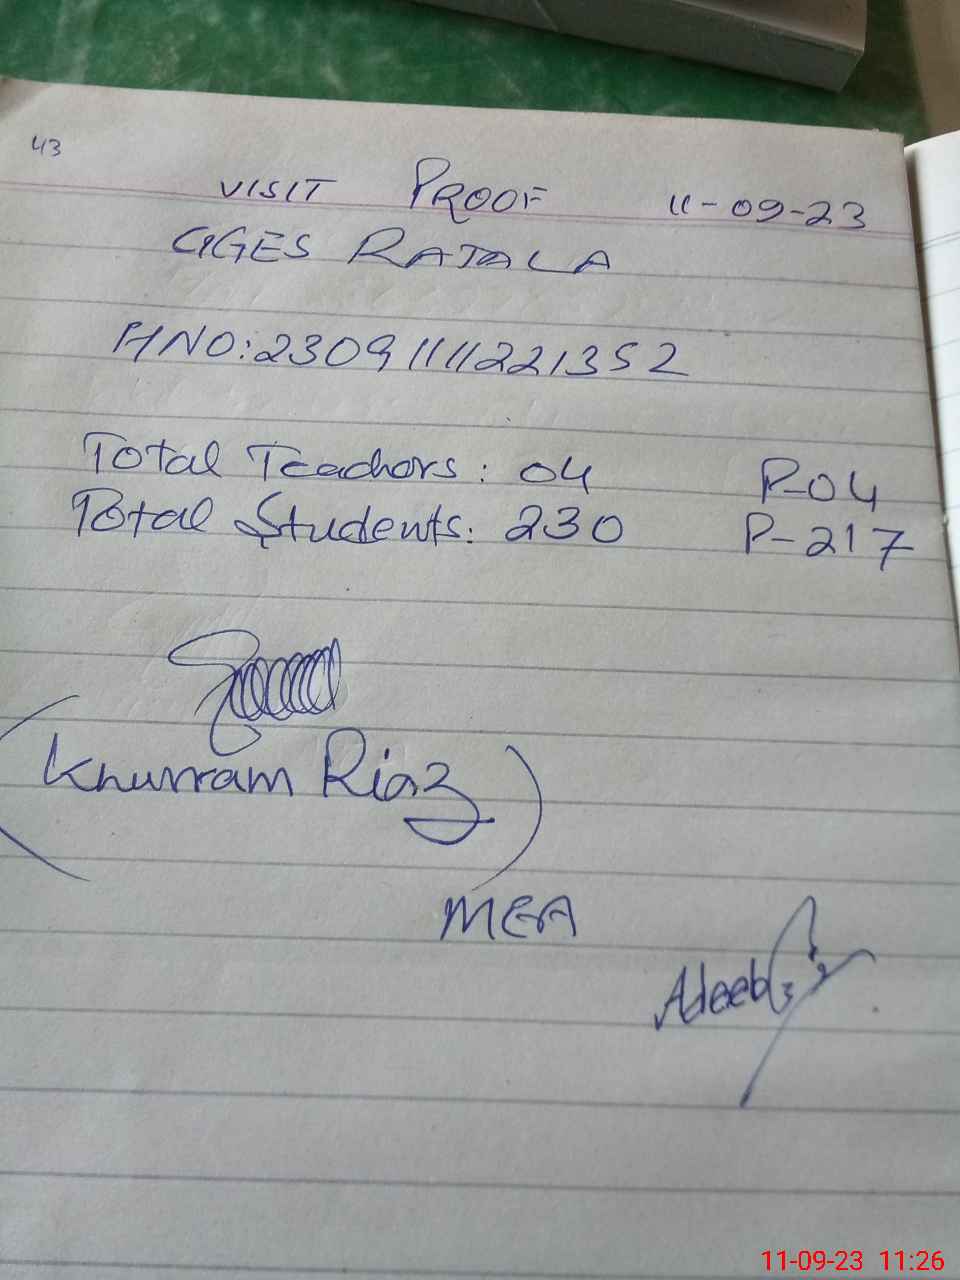 43
VISIT PROOF 11-09-23
GGES RAJALA
HNO:230911111221352
Total Teachors: 04 P-04
Total Students: 230 P-217
(Khurram Riaz)
MEA
Adeeb
11-09-23 11:26